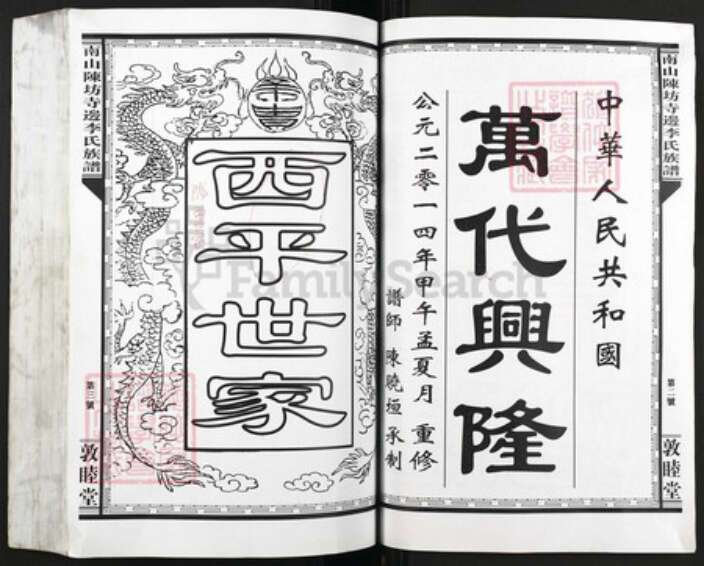 南山陳坊寺邊李氏族譜
第二號
敦睦堂
中華人民共和國
萬代興隆
公元二零一四年甲午孟夏月 重修
譜師 陳曉桓 承制
西平世家
南山陳坊寺邊李氏族譜
第三號
敦睦堂
FamilySearch